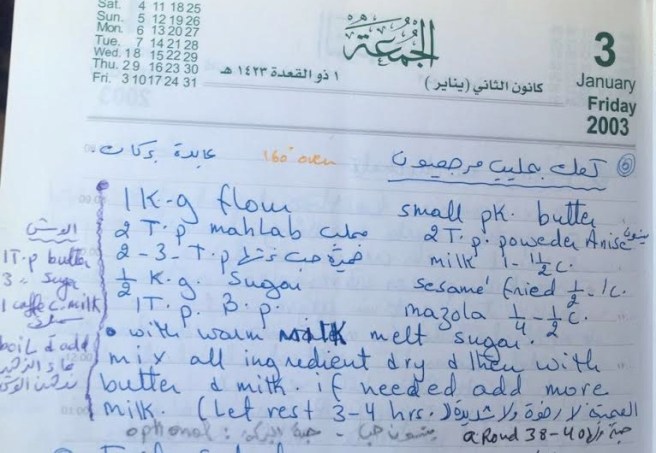 Sat. 4 11 18 25
Sun. 5 12 19 26
Mon. 6 13 20 27
Tue. 7 14 21 28
Wed. 1 8 15 22 29
Thu. 2 9 16 23 30
Fri. 3 10 17 24 31
الجمعة
١ ذو القعدة ١٤٢٣ هـ
كانون الثاني (يناير)
3
January
Friday
2003
كعك بحليب مرجعيون
160° oven
عايدة بركات
1 K.g flour
small pk. butter
2 T.p mahlab محلب
2 T.p. powder Anise يانسون
2-3-T.p خميرة حب
milk 1-1½ c.
½ K.g. Sugar
sesame fried ½-1c.
1T.p. B.p.
mazola ¼-½c.
• with warm milk melt sugar.
mix all ingredient dry & then with
butter & milk. if needed add more
milk. (Let rest 3-4 hrs. العجينة لا رخوة ولا شديدة)
optional: حبة البركة - يانسون حب
a Round 38-40 حبة
الوش
1T.p butter
3 " sugar
1 caffe c. milk
boil & add
ماء الزهر
ندهن الوش